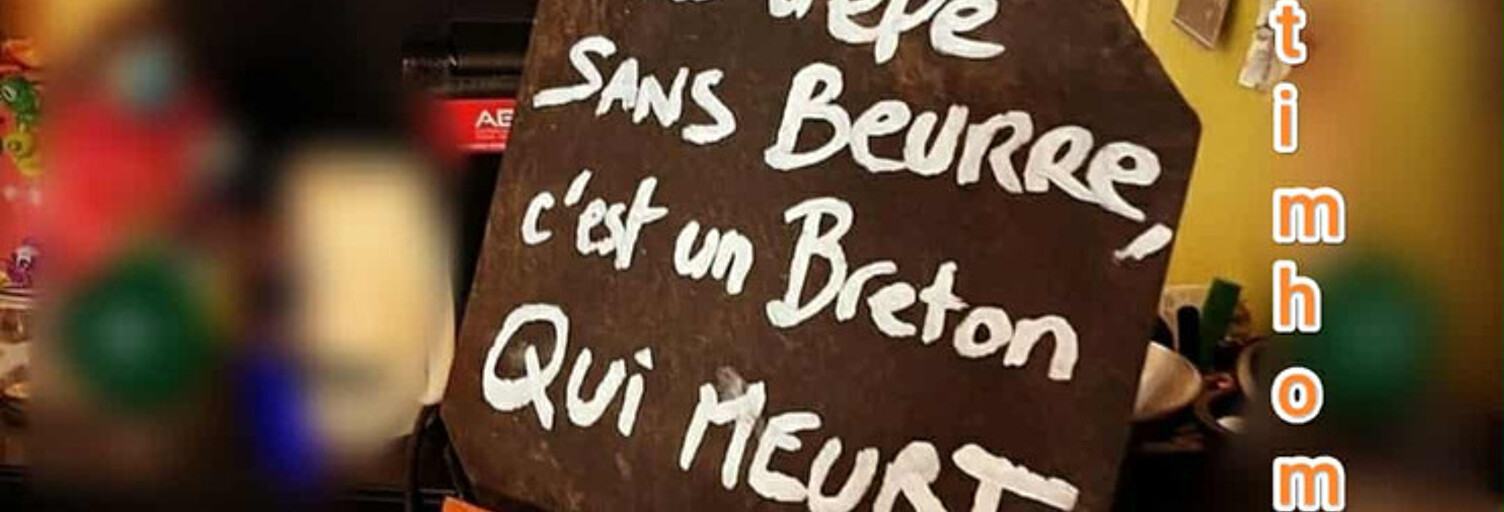 SANS BeURRe,
c'est un Breton
Qui MEURT
AE
t
i
m
h
o
m